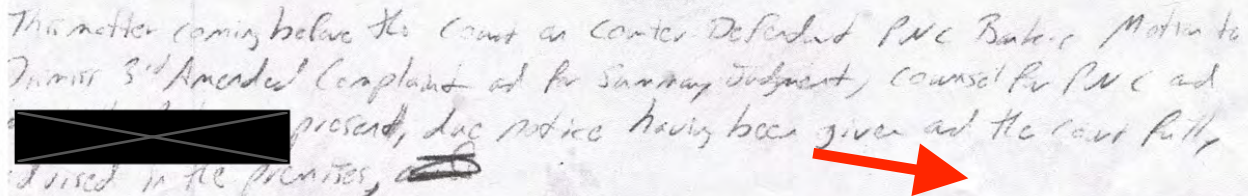 This matter coming before the Court on Counter Defendant PNC Bank's Motion to
Dismiss 3rd Amended Complaint and for Summary Judgment, counsel for PNC and
present, due notice having been given and the Court fully
advised in the premises,